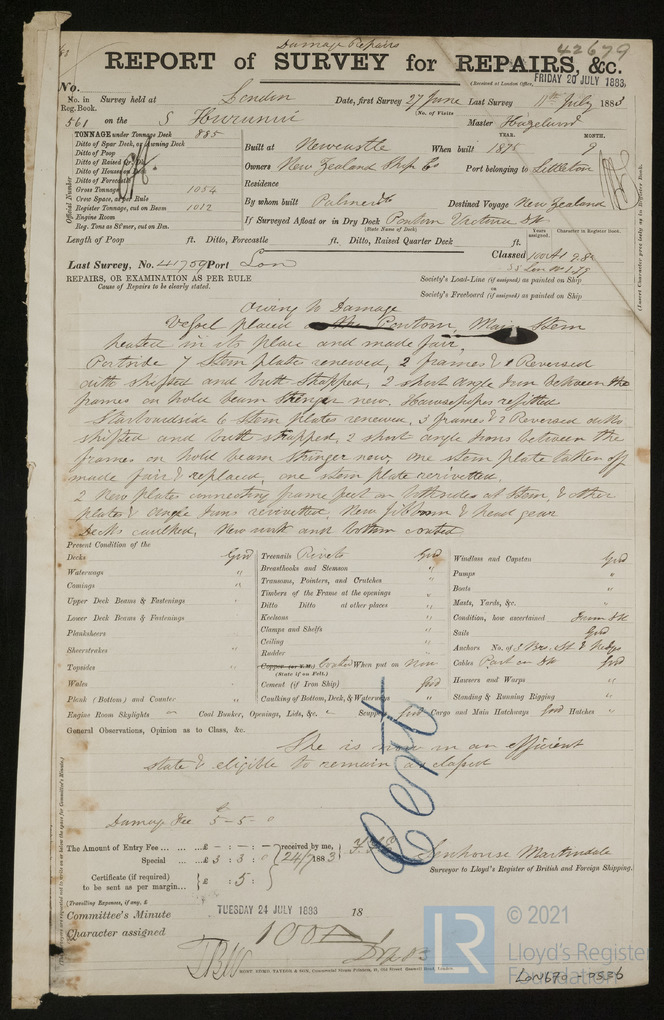 Damage Repairs
42679
REPORT of SURVEY for REPAIRS, &c.
(Received at London Office, FRIDAY 20 JULY 1883
No.
No. in Reg. Book. Survey held at London Date, first Survey 27 June Last Survey 11th July 1883
(No. of Visits
561 on the S Hurunui Master Hazelwood
TONNAGE under Tonnage Deck 885
Ditto of Spar Deck, or Awning Deck
Ditto of Poop
Ditto of Raised Qr. Dk.
Ditto of Houses on Deck
Ditto of Forecastle
Gross Tonnage 1054
Crew Space, as per Rule
Register Tonnage, cut on Beam 1012
Engine Room
Reg. Tons as St'mer, cut on Bm.
Official Number
YEAR. MONTH.
Built at Newcastle When built 1875 9
Owners New Zealand Ship Co Port belonging to Littleton
Residence
By whom built Palmer & Co Destined Voyage New Zealand
If Surveyed Afloat or in Dry Dock Pontoon Victoria Dk
(State Name of Dock)
Length of Poop ft. Ditto, Forecastle ft. Ditto, Raised Quarter Deck ft.
Years assigned. Character in Register Book.
Last Survey, No. 41759 Port Lon Classed 100A1 9.80
REPAIRS, OR EXAMINATION AS PER RULE
Cause of Repairs to be clearly stated.
Society's Load-Line (if assigned) as painted on Ship
on
Society's Freeboard (if assigned) as painted on Ship
Owing to Damage
Vessel placed on the Pontoon, Main Stem
heated in its place and made fair,
Portside 7 Stem plates renewed, 2 frames & 1 Reversed
ditto shifted and butt strapped, 2 short angle Iron between the
frames on hold beam Stringer new, Hawsepipes refitted
Starboardside 6 Stem plates renewed, 3 frames & 2 Reversed ditto
shifted and butt strapped, 2 short angle Irons between the
frames on hold beam Stringer new, one stem plate taken off
made fair & replaced, one stem plate rerivetted.
2 New plates connecting frame feet on bothsides at Stem, & other
plates & angle Irons rerivetted, New Jibboom & head gear
Decks caulked, New work and bottom coated
Present Condition of the
Decks Good
Waterways "
Comings "
Upper Deck Beams & Fastenings "
Lower Deck Beams & Fastenings "
Planksheers "
Sheerstrakes "
Topsides "
Wales "
Plank (Bottom) and Counter "
Treenails Rivets Good
Breasthooks and Stemson "
Transoms, Pointers, and Crutches "
Timbers of the Frame at the openings "
Ditto Ditto at other places "
Keelsons "
Clamps and Shelfs "
Ceiling "
Rudder "
Copper (or Y.M.) Coated When put on Now
(State if on Felt.)
Cement (if Iron Ship) Good
Caulking of Bottom, Deck, & Waterways "
Windlass and Capstan Good
Pumps "
Boats "
Masts, Yards, &c. "
Condition, how ascertained From Dk
Sails Good
Anchors No. of 3 Brs, St. & Kedges
Cables Part on Dk Good
Hawsers and Warps "
Standing & Running Rigging "
Engine Room Skylights — Coal Bunker, Openings, Lids, &c. " Scuppers Good Cargo and Main Hatchways Good Hatches "
General Observations, Opinion as to Class, &c.
She is now in an efficient
state & eligible to remain as classed
Damage Fee £ 5-5-0
Cert
The Amount of Entry Fee ... ... £ - : - : - received by me,
Special ... £ 3 : 3 : 0 24/7 1883
Certificate (if required) to be sent as per margin... £ : 5 :
Surveyor to Lloyd's Register of British and Foreign Shipping.
(Travelling Expenses, if any, £
Committee's Minute TUESDAY 24 JULY 1883 18
Character assigned 100A
MOST. STOKE. TAYLER, & MOIN, Commercial Steam Printers, London
© 2021
LR
Lloyd's Register
Foundation
LON670-0536